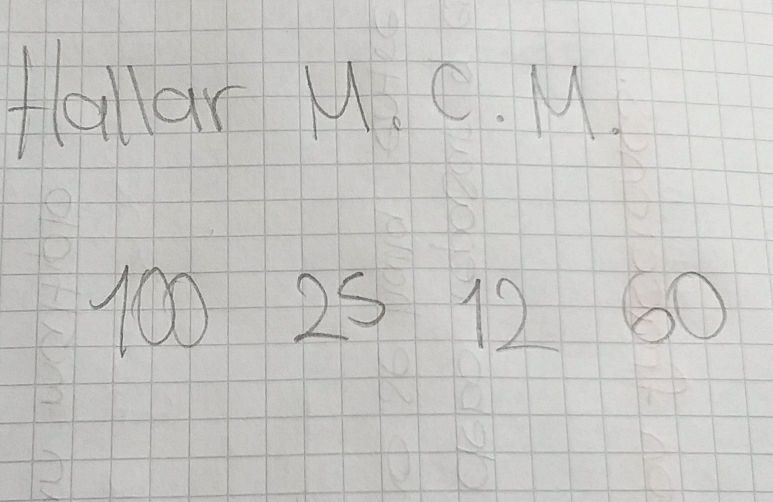 Hallar M.C.M.
100 25 12 60